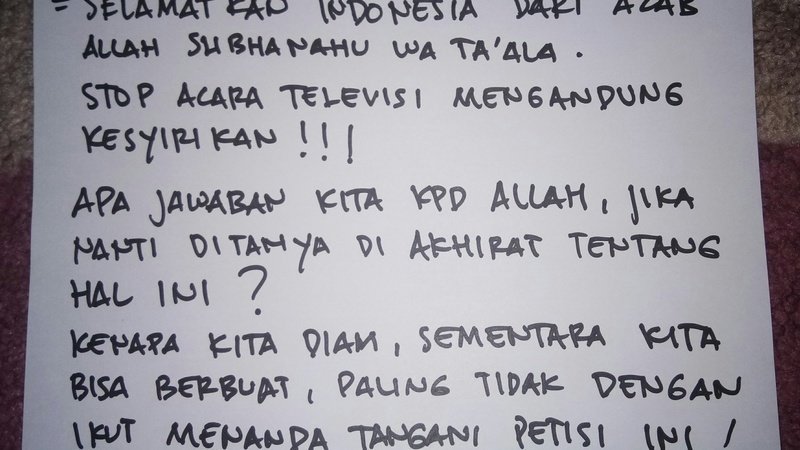 = SELAMATKAN INDONESIA DARI AZAB
ALLAH SUBHANAHU WA TA'ALA.
STOP ACARA TELEVISI MENGANDUNG
KESYIRIKAN !!!
APA JAWABAN KITA KPD ALLAH, JIKA
NANTI DITANYA DI AKHIRAT TENTANG
HAL INI ?
KENAPA KITA DIAM, SEMENTARA KITA
BISA BERBUAT, PALING TIDAK DENGAN
IKUT MENANDA TANGANI PETISI INI /